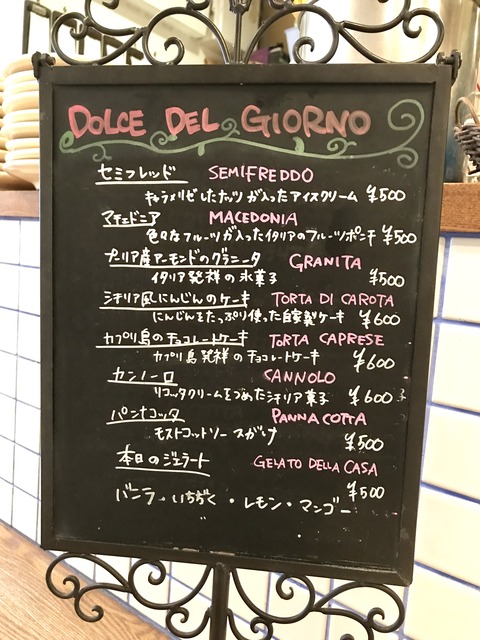 DOLCE DEL GIORNO
セミフレッド SEMIFREDDO
キャラメリゼしたナッツが入ったアイスクリーム ¥500
マチェドニア MACEDONIA
色々なフルーツが入ったイタリアのフルーツポンチ ¥500
プーリア産アーモンドのグラニータ GRANITA
イタリア発祥の氷菓子 ¥500
シチリア風にんじんのケーキ TORTA DI CAROTA
にんじんをたっぷり使った自家製ケーキ ¥600
カプリ島のチョコレートケーキ TORTA CAPRESE
カプリ島発祥のチョコレートケーキ ¥600
カンノーロ CANNOLO
リコッタクリームをつめたシチリア菓子 ¥600
パンナコッタ PANNA COTTA
モストコットソースがけ ¥500
本日のジェラート GELATO DELLA CASA
¥500
バニラ・いちぢく・レモン・マンゴー